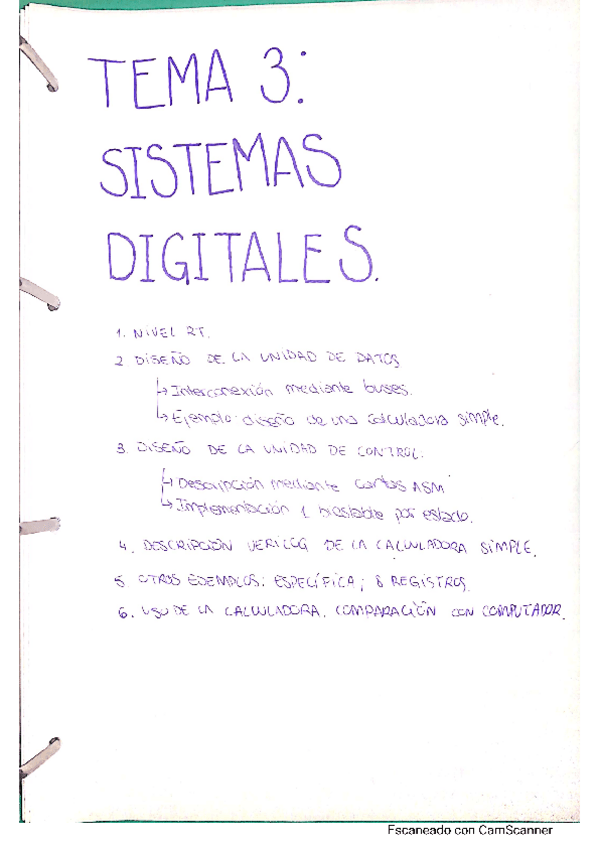 TEMA 3:
SISTEMAS
DIGITALES.
1. NIVEL RT.
2 DISEÑO DE LA UNIDAD DE DATOS
↳ Interconexión mediante buses.
↳ Ejemplo: diseño de una calculadora simple.
3. DISEÑO DE LA UNIDAD DE CONTROL.
↳ Descripción mediante cartas ASM
↳ Implementación 1 biestable por estado.
4. DESCRIPCIÓN VERILOG DE LA CALCULADORA SIMPLE.
5 OTROS EJEMPLOS: ESPECÍFICA; 8 REGISTROS.
6. USO DE LA CALCULADORA. COMPARACIÓN CON COMPUTADOR.
Escaneado con CamScanner